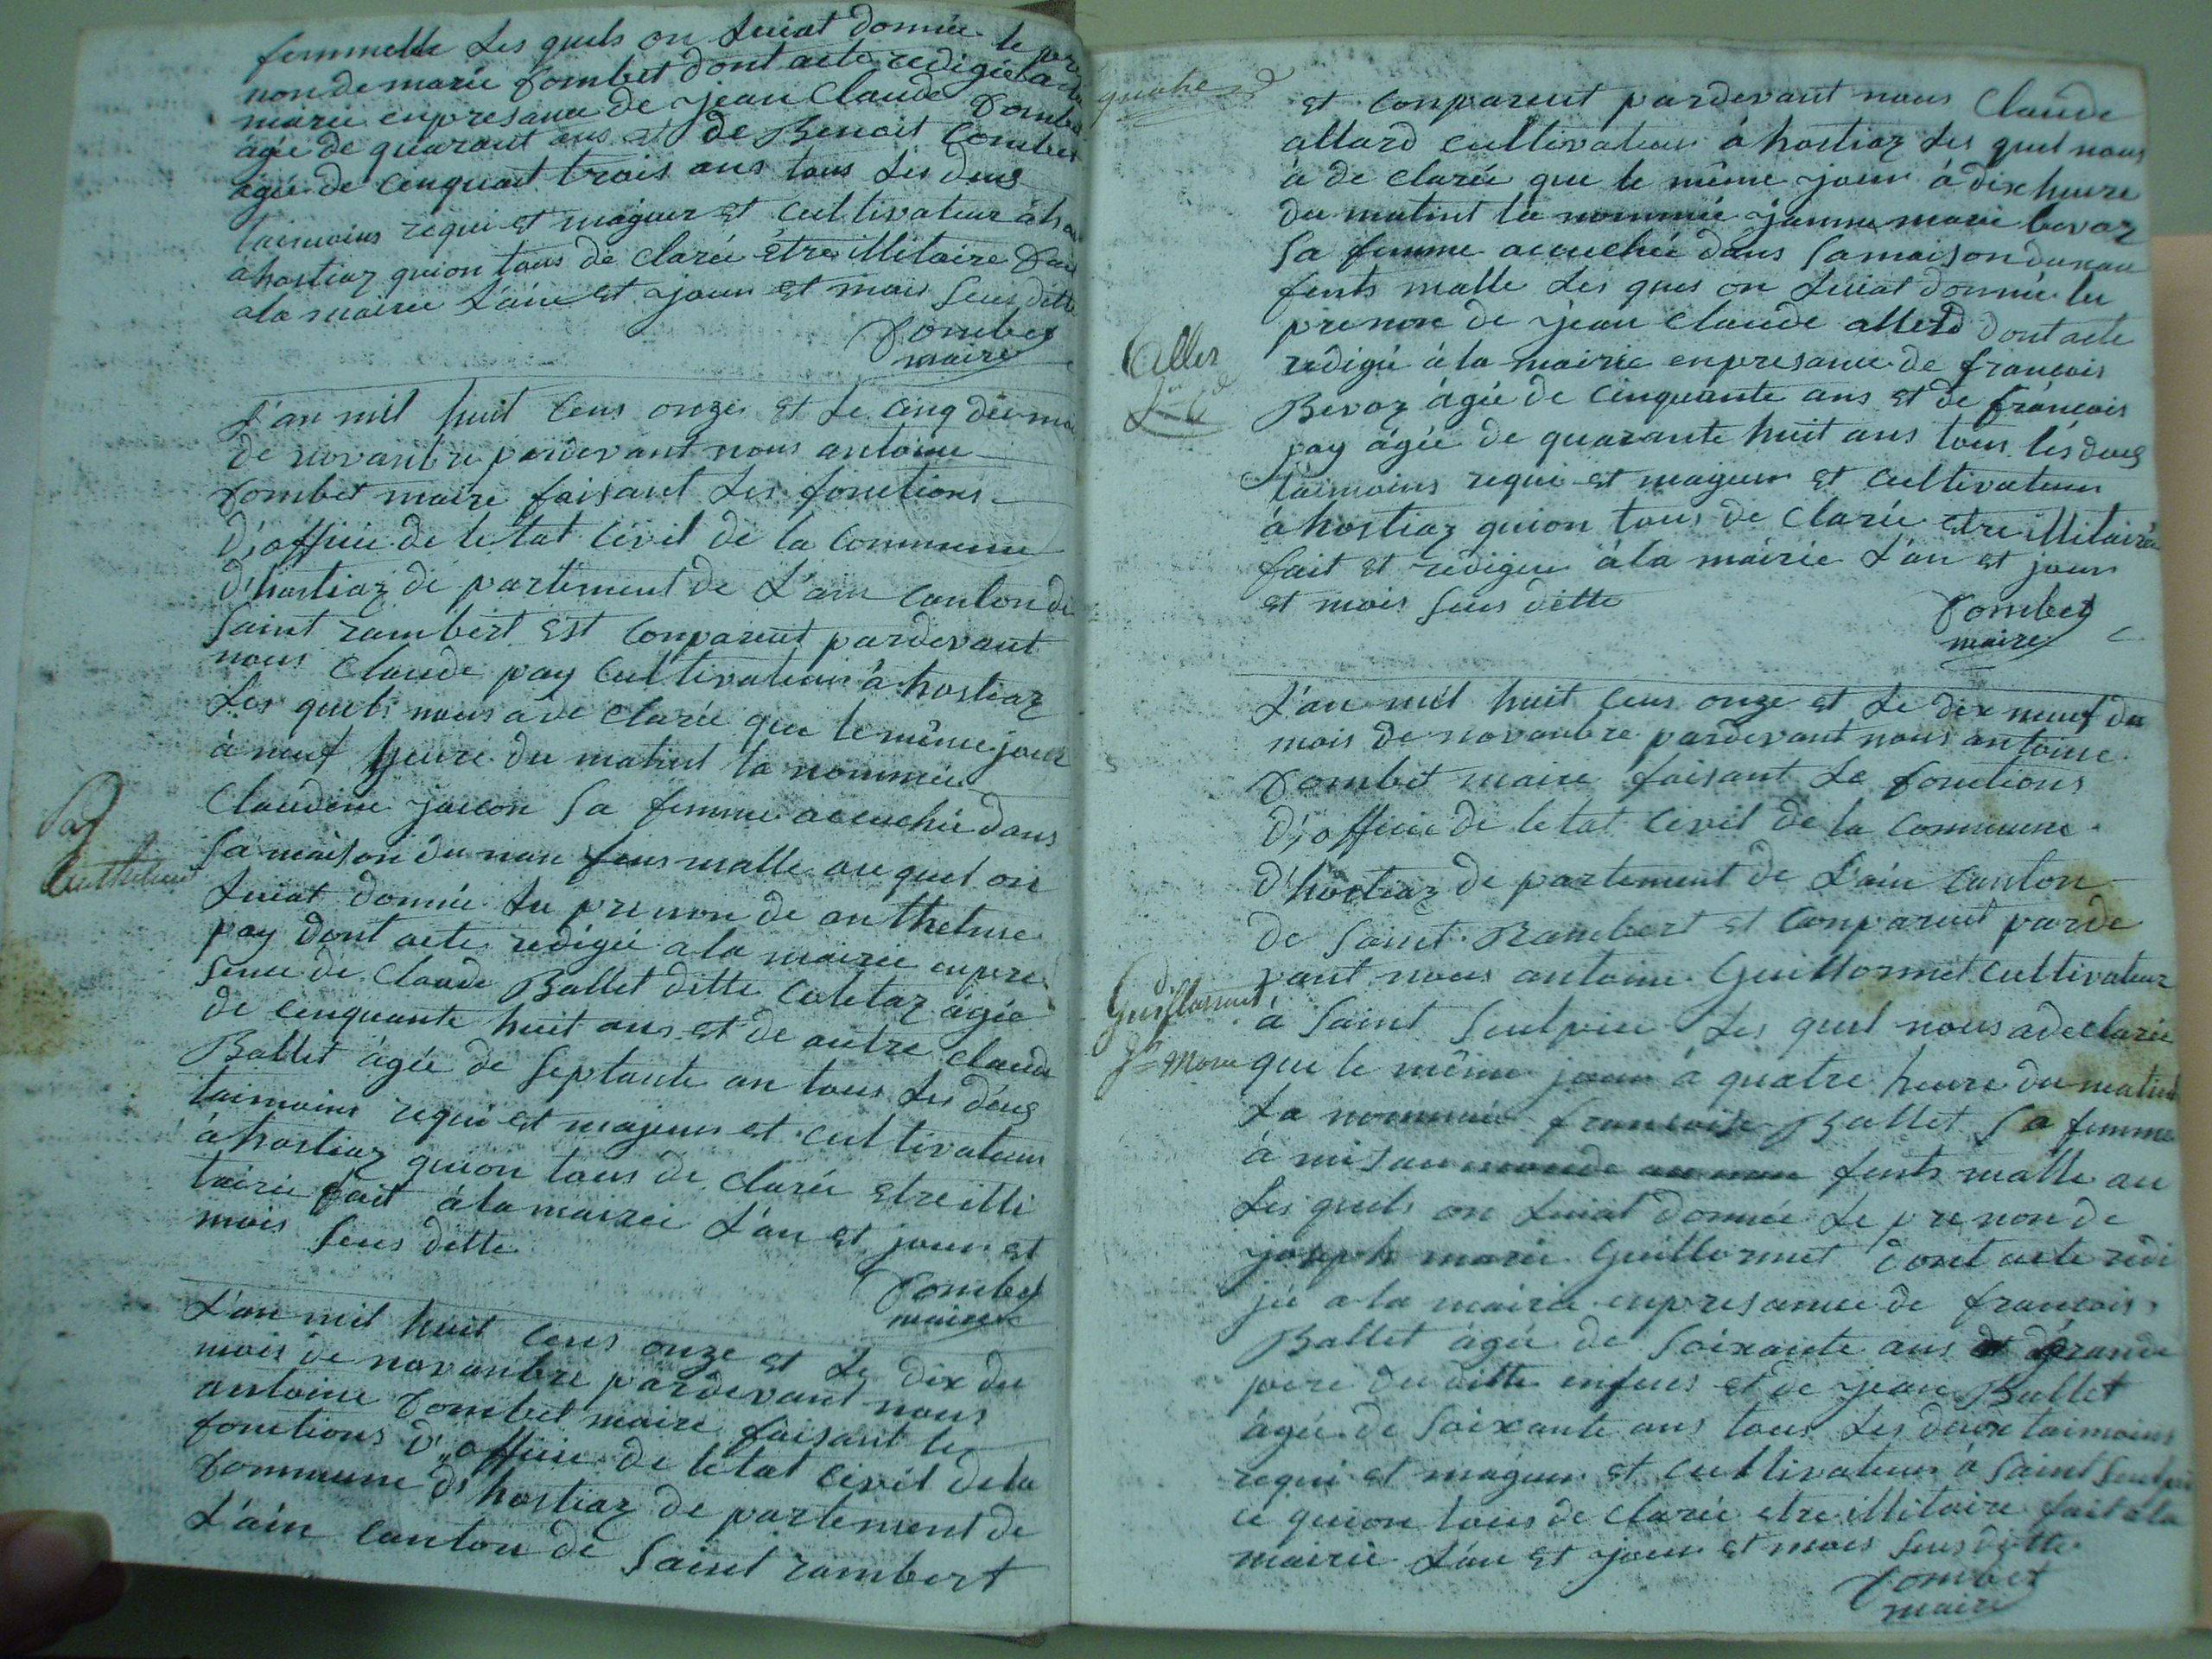 femmelle Les quels on Luiat donnée le pre
non de marie Dombet dont acte redigée a la
mairie enpresance de jean Claude Dombet
agée de quarant ans et de Benoit Combet
agée de cinquant trois ans tous Les deus
taimoins requi et mageur et cultivateur à h
a hostiaz quion tous de clarée être illitaire Dans
a la mairie L'an et jour et mois sus ditte
Dombet
maire
L'an mil huit Cens onze et Le cinq du moi
de novanbre pardevant nous antoine
Dombet maire faisant Les fonctions
D'officié de letat Civil de la Commune
D'hostiaz de partement de L'ain Canton de
Saint rambert est Conparent pardevant
nous Claude pay Cultivateur à hostiaz
Les quels nous a de clarée que le même jour
à neuf heure du matint la nommée
Claudine jacon Sa femme accuchée dans
Sa maison du nan fens malle au quel on
Luiat donnée Le pre non de anthelme
pay Dont acte redigée a la mairie enpre
sence de Claude Ballet ditte Culetaz agée
de cinquante huit ans et de autre claude
Ballet agée de Septante an tous Les deus
taimoins requi et majeur et cultivateur
à hostiaz quion tous de clarée etre illi
tairée fait à la mairie L'an et jour et
mois sus ditte
Dombet
maire
Pay
Anthelme
L'an mil huit Cens onze et Le Dix du
mois de novanbre pardevant nous
antoine Dombet maire faisant les
fonctions D'officié de letat civil dela
Commune D'hostiaz de partement de
L'ain Canton de Saint rambert
et Conparent pardevant nous Claude
allard cultivateur à hostiaz Les quel nous
à de clarée que le même jour à dix heure
du matint la nommée janne marie bevoz
Sa femme accuchée dans Sa maison dunan
fents malle Les ques on Luiat donnée le
prenon de jean Claude allard Dont acte
redigé à la mairie enpresance de francois
Bevoz âgée de Cinquante ans et de francois
pay âgée de quarante huit ans tous les deus
taimoins requi et mageur et cultivateur
à hostiaz quion tous de clarée etre illitairée
fait et redigée à la mairie L'an et jour
et mois sus ditte
Dombet
maire
Aller
Jn Cd
L'an mil huit Cens onze et Le dix neuf du
mois de novanbre pardevant nous antoine
Dombet maire faisant Le fonctions
D'officié de letat Civil de la Commune
D'hostiaz de partement de L'ain Canton
de Saint Rambert et Conparent parde
vant nous antoine Guillormet cultivateur
à Saint Sculpice Les quel nous a de clarée
que le même jour à quatre heure du matint
La nommée francoise Ballet Sa femme
à mis au monde au nan fents malle au
Les quels on Luiat donnée Le pre non de
joseph marie Guillormet Dont acte redi
jée a la mairie enpresance de francois
Ballet âgée de Soixante ans grande
pere du ditte enfens et de jean Ballet
âgée de Soixante ans tous Les deux taimoins
requi et mageur et cultivateur à Saint Sculpi
ce quion tous de clarée etre illitaire fait à la
mairie L'an et jour et mois sus ditte
Dombet
maire
Guillormet
Jh Marie